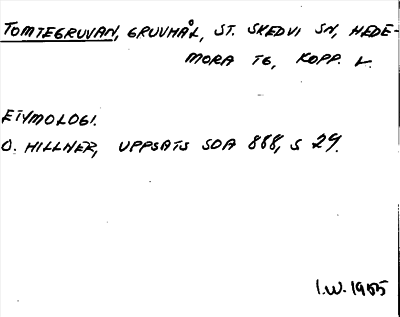 TOMTEGRUVAN, GRUVHÅL, ST. SKEDVI SN, HEDE-
MORA TG, KOPP. L.
ETYMOLOGI.
O. HILLNER, UPPSATS SOA 888, S 29.
I.W. 1955